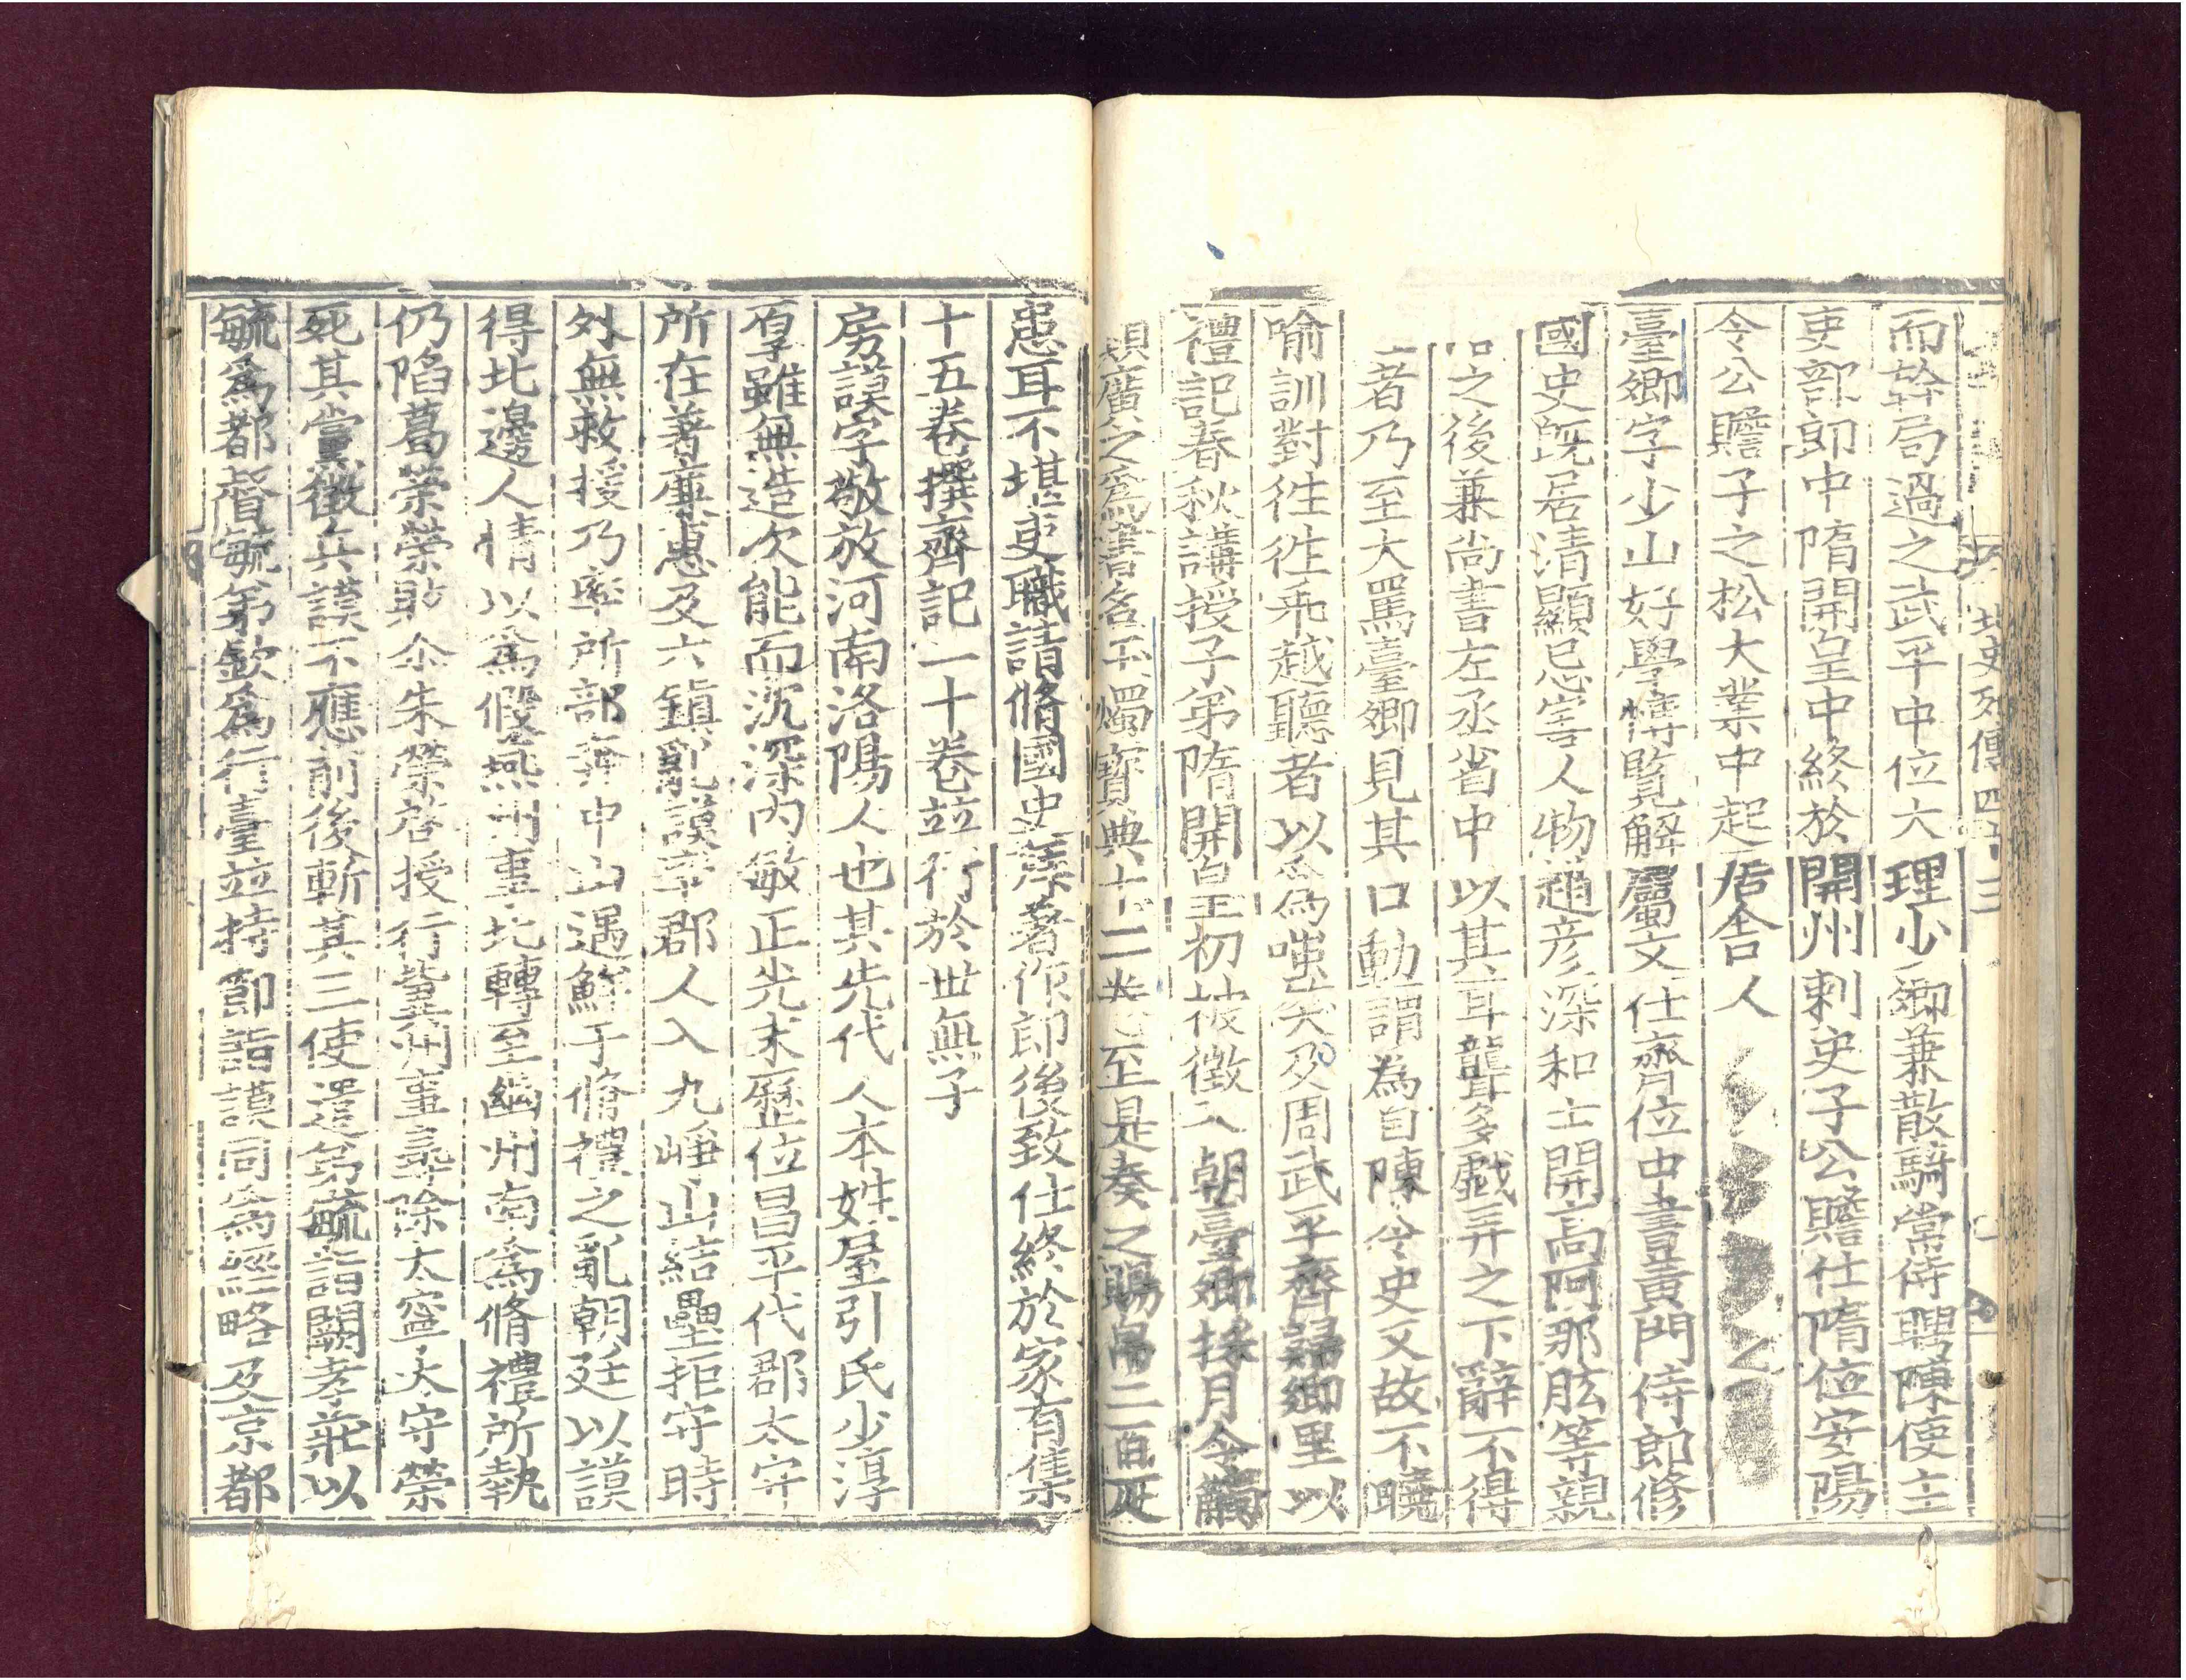 北史列傳四十三
而幹局過之武平中位大理少卿兼散騎常侍聘陳使主
吏部郎中隋開皇中終於開州刺史子公贍仕隋位安陽
令公贍子之松大業中起居舍人
臺卿字少山好學博覽解屬文仕齊位中書黃門侍郎修
國史既居清顯忌害人物趙彦深和士開高阿那肱等親
之後兼尚書左丞省中以其耳聾多戲弄之下辭不得
者乃至大罵臺卿見其口動謂為自陳令史又故不曉
喻訓對徃徃乖越聽者以爲嗤笑及周武平齊歸鄉里以
禮記春秋講授子弟隋開皇初被徵入朝臺卿採月令觸
類廣之爲書名玉燭寶典十二卷至是奏之賜帛二百疋
患耳不堪吏職請脩國史拜著作郎後致仕終於家有集
十五卷撰齊記二十卷並行於世無子
房謨字敬放河南洛陽人也其先代人本姓屋引氏少淳
厚雖無造次能而沉深内敏正光末歷位昌平代郡太守
所在著廉惠及六鎮亂謨率郡人入九崢山結壘拒守時
外無救援乃率所部奔中山遇鮮于脩禮之亂朝廷以謨
得北邊人情以爲假燕州事北轉至幽州南爲脩禮所執
仍陷葛榮榮敗尒朱榮啓授行冀州事尋除太寧太守榮
死其黨徵兵謨不應前後斬其三使遣弟毓詣闕孝莊以
毓爲都督毓弟欽爲行臺並持節詣謨同爲經略及京都